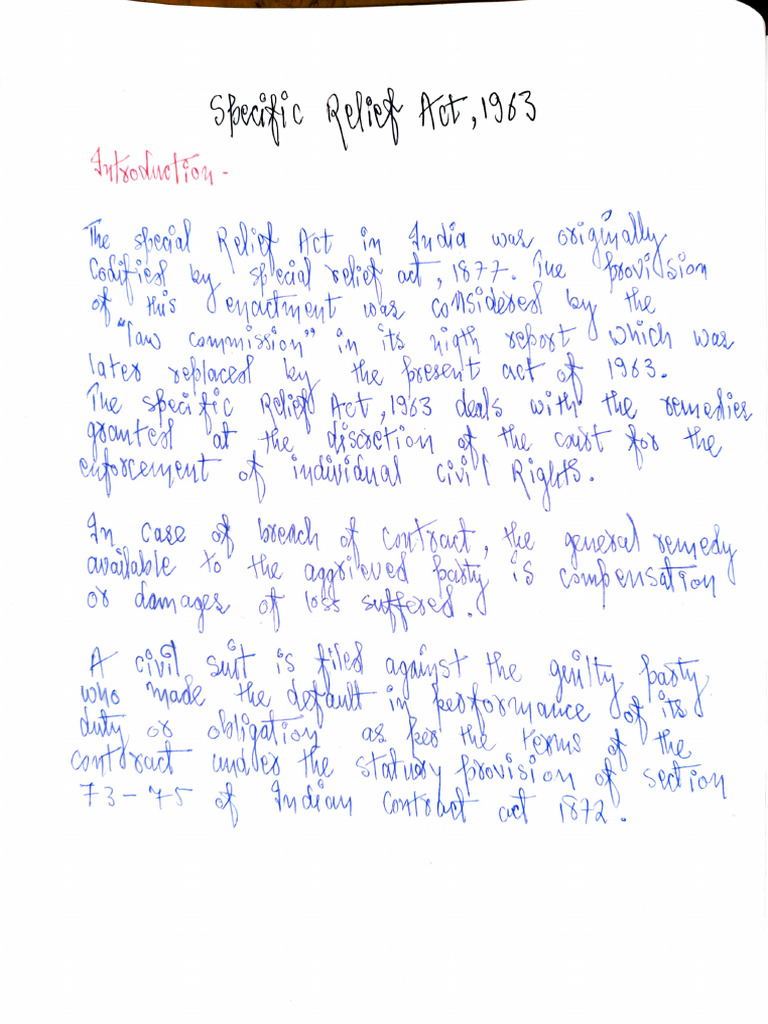 Specific Relief Act, 1963
Introduction -
The special Relief Act in India was originally
Codified by special relief act, 1877. The provision
of this enactment was considered by the
"law commission" in its nigth report which was
later replaced by the present act of 1963.
The specific Relief Act, 1963 deals with the remedies
granted at the discretion of the court for the
enforcement of individual civil Rights.
In case of breach of contract, the general remedy
available to the aggrieved party is compensation
or damages of loss suffered.
A civil suit is filed against the guilty party
who made the default in performance of its
duty or obligation as per the terms of the
contract under the statuary provision of section
73-75 of Indian Contract act 1872.